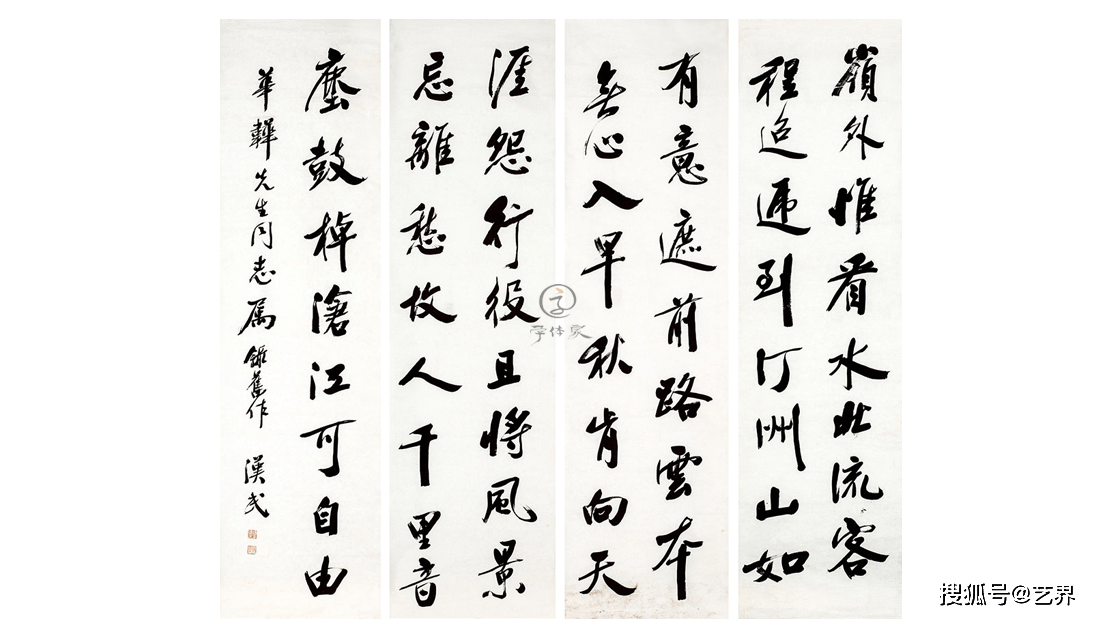 嶺外惟看水北流客
程迢遞到汀州山如
有意遮前路雲本
無心入早秋肯向天
涯怨行役且將風景
忘離愁故人千里音
塵鼓棹滄江可自由
華先生同志属錄舊作 漢民
字体家
搜狐号@艺界